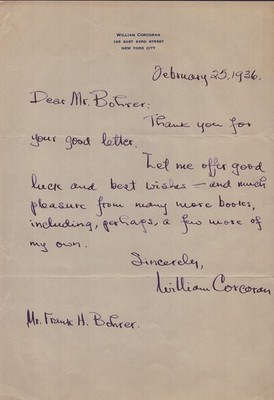 WILLIAM CORCORAN
145 EAST 53RD STREET
NEW YORK CITY
February 25, 1936.
Dear Mr. Bohrer:
Thank you for
your good letter.
Let me offer good
luck and best wishes — and much
pleasure from many more books,
including, perhaps, a few more of
my own.
Sincerely,
William Corcoran
Mr. Frank H. Bohrer.